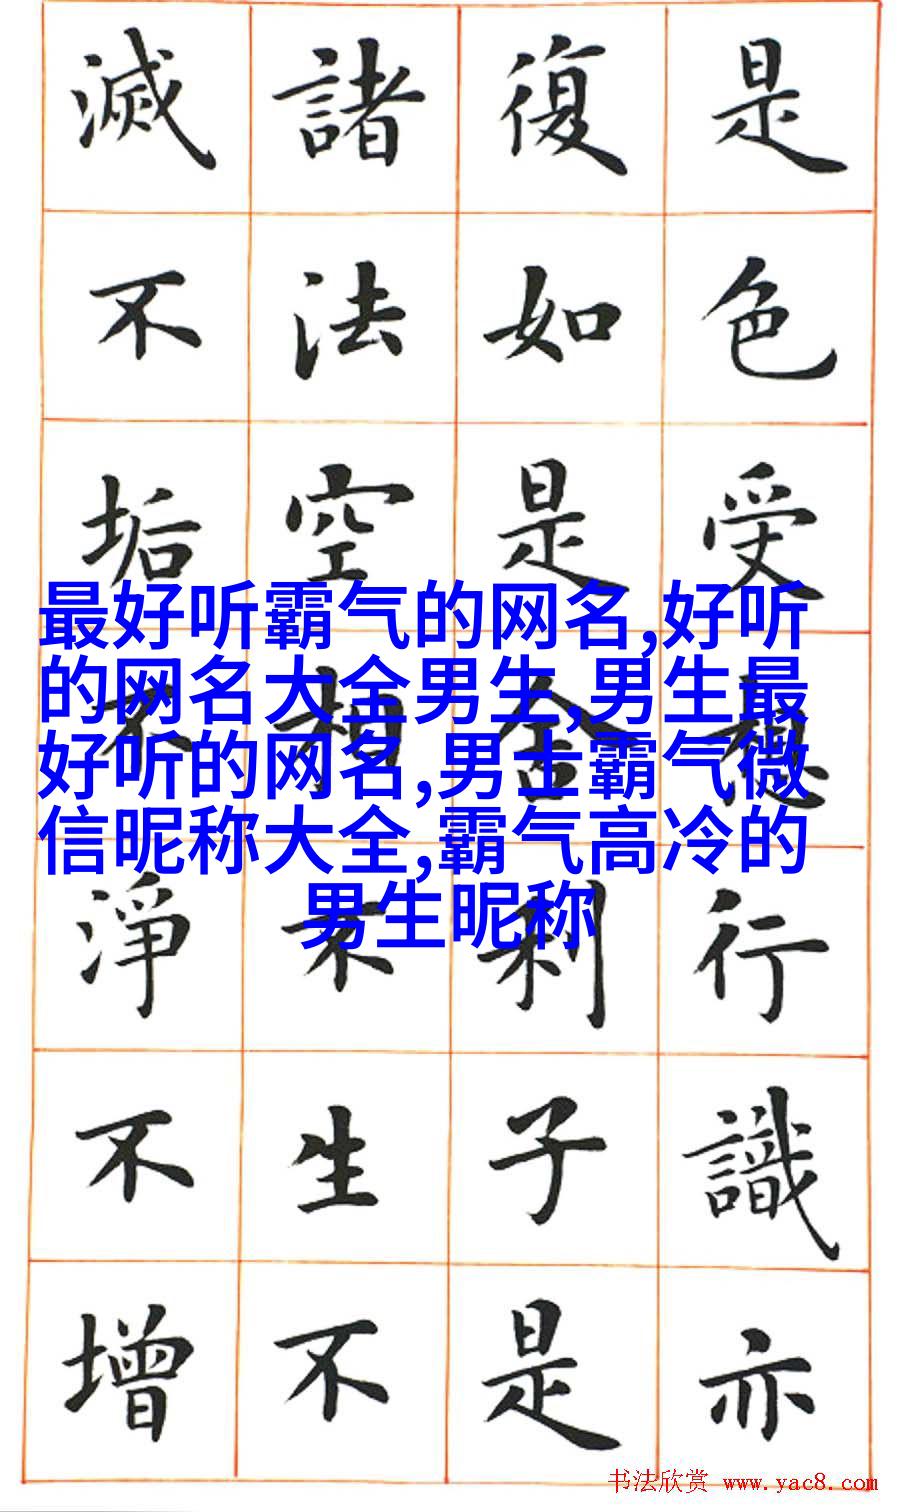 是色受想行識亦
復如是舍利子是
諸法空相不生不
滅不垢不淨不增
最好听霸气的网名,好听
的网名大全男生,男生最
好听的网名,男士霸气微
信昵称大全,霸气高冷的
男生昵称
书法欣赏 www.yac8.com